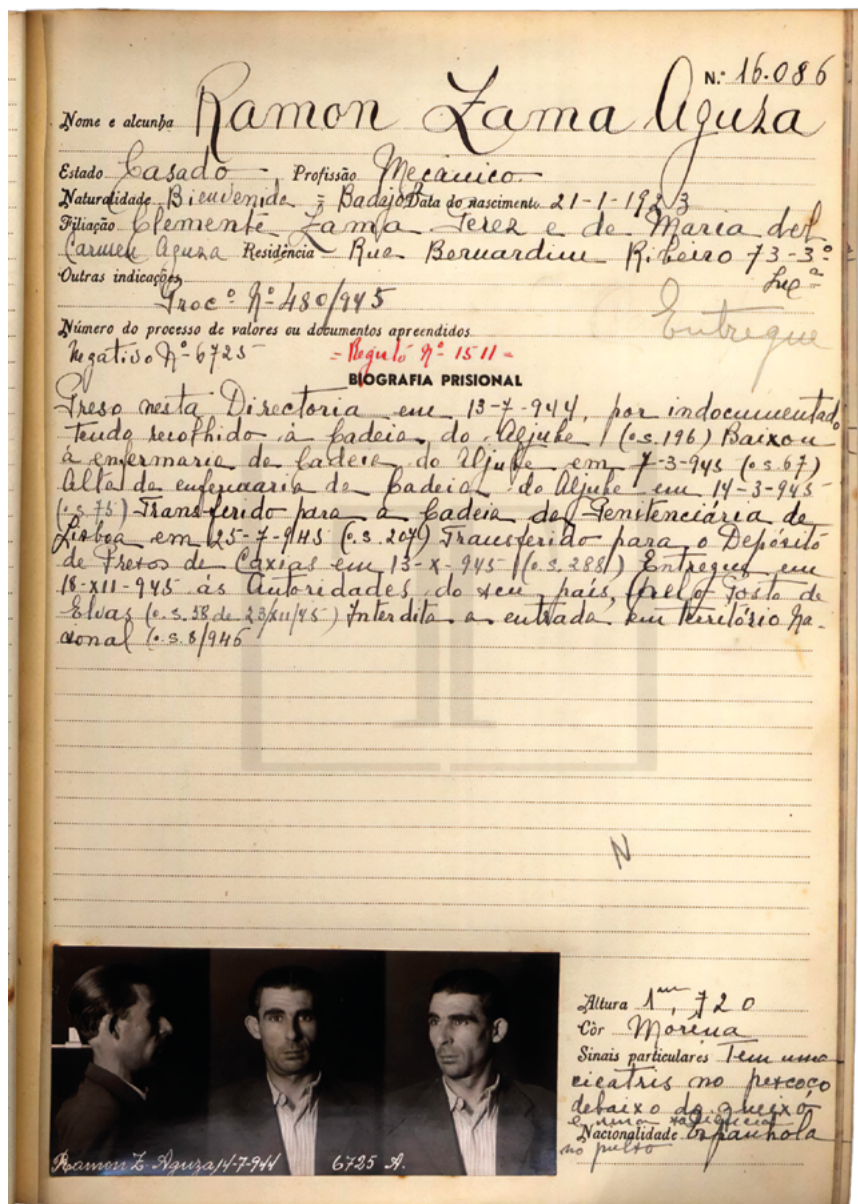 N.º 16.086
Nome e alcunha Ramon Zama Aguza
Estado Casado - Profissão Mecânico -
Naturalidade Bienvenida = Badajoz Data do nascimento 21-1-1923
Filiação Clemente Zama Perez e de Maria del
Carmen Aguza Residência - Rua Bernardim Ribeiro 73-3º
Outras indicações
Procº Nº 480/945
Entregue
Número do processo de valores ou documentos apreendidos
Negativo Nº 6725 = Registº Nº 1511 =
BIOGRAFIA PRISIONAL
Preso nesta Directoria em 13-7-944, por indocumentado,
tendo recolhido à Cadeia do Aljube (o.s.196) Baixou
à enfermaria da Cadeia do Aljube em 7-3-945 (o.s.67)
Alta da enfermaria da Cadeia do Aljube em 14-3-945
(o.s.75) Transferido para a Cadeia da Penitenciária de
Lisboa em 25-7-945 (o.s.207) Transferido para o Depósito
de Presos de Caxias em 13-X-945 (o.s.288) Entregue em
18-XII-945 às Autoridades do seu país, pelo Posto de
Elvas (o.s.38 de 23/XII/45) Interdita a entrada em território Na-
cional (o.s.8/946
N
Altura 1m,720
Côr Morena
Sinais particulares Tem uma
cicatris no pescoço
debaixo do queixo
e uma no pulso
Nacionalidade Espanhola
Ramon Z. Aguza 14-7-944 6725 A.